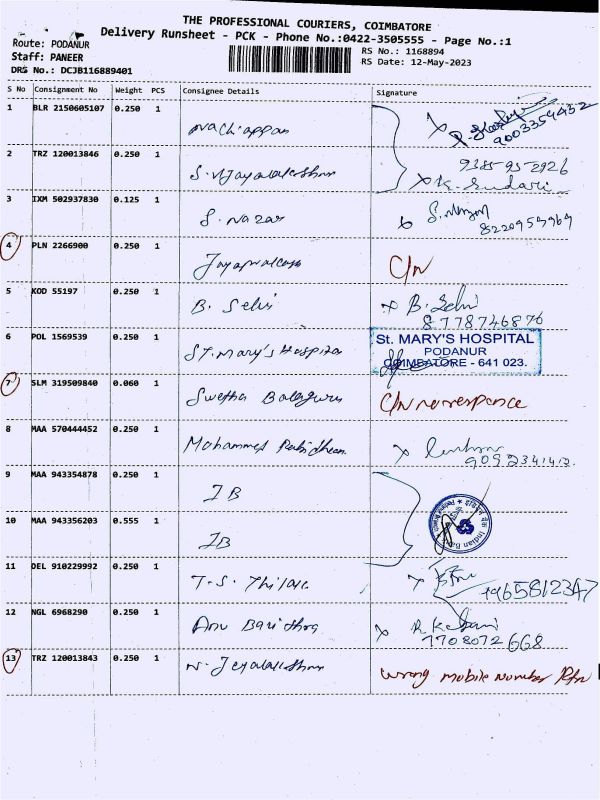 THE PROFESSIONAL COURIERS, COIMBATORE
Delivery Runsheet - PCK - Phone No.:0422-3505555 - Page No.:1
Route: PODANUR
RS No.: 1168894
Staff: PANEER
RS Date: 12-May-2023
DRS No.: DCJB116889401
S No Consignment No Weight PCS Consignee Details Signature
1 BLR 2150605107 0.250 1 Nachappan
9003354452
2 TRZ 120013846 0.250 1 S. Vijayalakshmi
9385-95-2926
K. Sundari
3 IXM 502937830 0.125 1 S. Nazar
8220955969
4 PLN 2266900 0.250 1 C/N
5 KOD 55197 0.250 1 B. Selvi B. Selvi
8778746876
6 POL 1569539 0.250 1 ST. Mary's Hospital
St. MARY'S HOSPITAL
PODANUR
COIMBATORE - 641 023.
7 SLM 319509840 0.060 1 Swetha Balaguru C/N no responce
8 MAA 570444452 0.250 1 Mohammed
9092341412
9 MAA 943354878 0.250 1 IB
10 MAA 943356203 0.555 1 IB
Indian Bank
11 DEL 910229992 0.250 1 T.S. Thilak
9965812347
12 NGL 6968290 0.250 1 Anu
7708072668
13 TRZ 120013843 0.250 1 N. Jeyalakshmi wrong mobile number Rtn